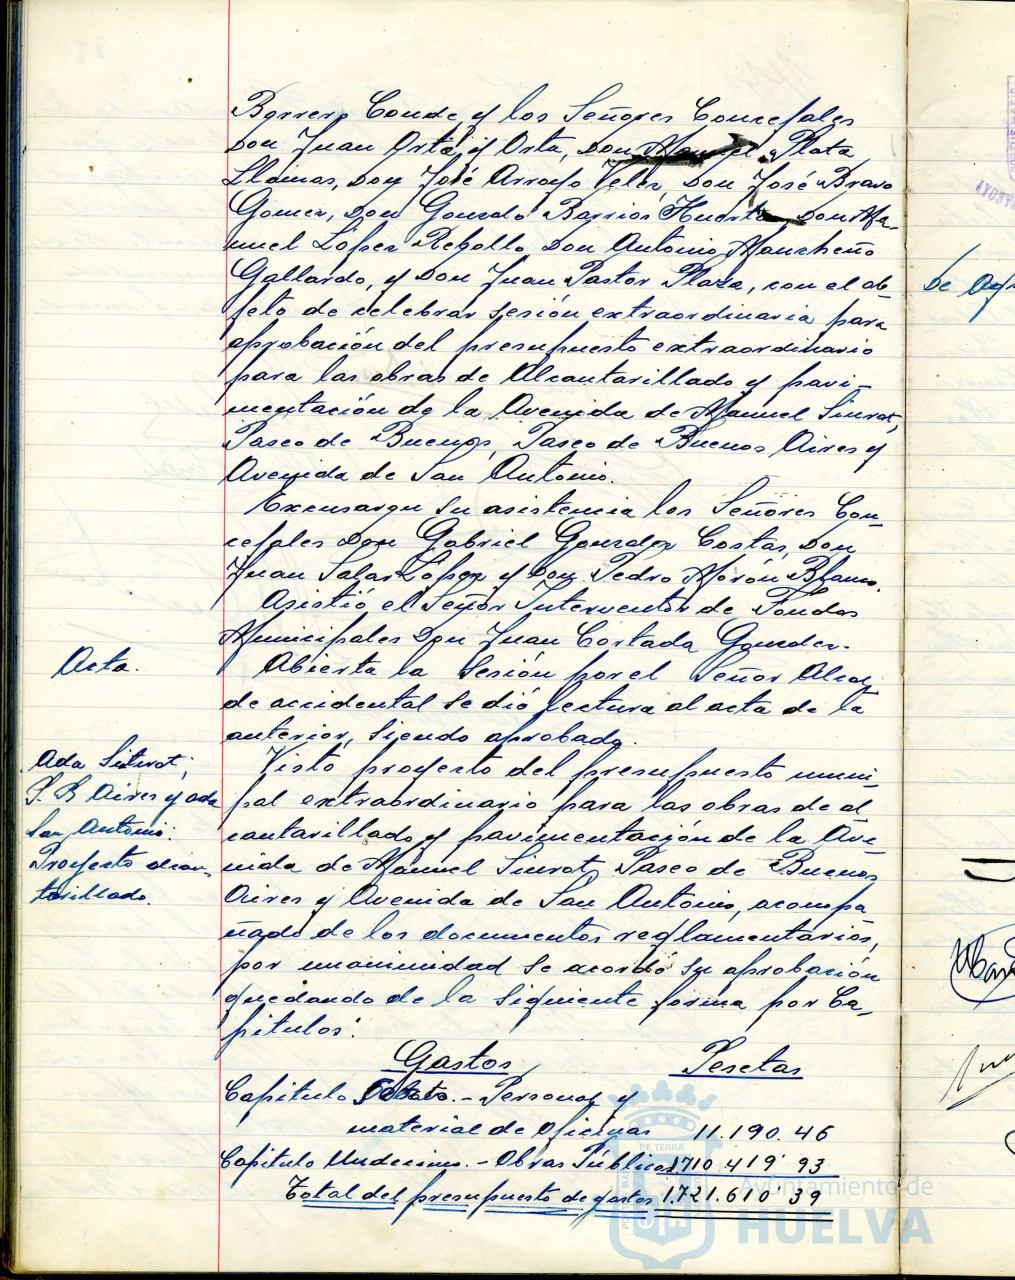 Borrero Conde, y los Señores Concejales
Don Juan Orta y Orta, Don Manuel Plata
Llamas, Don José Arroyo Velez, Don José Bravo
Gomez, Don Gonzalo Barrios Huerta, Don Ma-
nuel López Rebollo Don Antonio Mancheño
Gallardo, y Don Juan Pastor Plaza, con el ob-
jeto de celebrar sesión extraordinaria para
aprobación del presupuesto extraordinario
para las obras de Alcantarillado y pavi-
mentación de la Avenida de Manuel Siurot,
Paseo de Buenos, Paseo de Buenos Aires y
Avenida de San Antonio.
Excusaron su asistencia los Señores Con-
cejales Don Gabriel Gonzalez Costas, Don
Juan Salas López y Don Pedro Morón Blanco.
Asistió el Señor Interventor de Fondos
Municipales Don Juan Cortada Gonzalez.
Acta.
Abierta la Sesión por el Señor Alcal-
de accidental se dió lectura al acta de la
anterior, siendo aprobada.
Ada Siurot,
P. B Aires y ada
San Antonio.
Proyecto alcan-
tarillado.
Visto proyecto del presupuesto muni-
pal extraordinario para las obras de al
cantarillado y pavimentación de la Ave-
nida de Manuel Siurot, Paseo de Buenos
Aires y Avenida de San Antonio, acompa-
ñado de los documentos reglamentarios,
por unanimidad se acordó su aprobación
quedando de la siguiente forma por Ca-
pitulos:
Gastos Pesetas
Capitulo .- Personal y
material de oficinas 11.190.46
Capitulo Undecimo.- Obras Públicas 1.710.419'93
Total del presupuesto de gastos 1.721.610'39
Ayuntamiento de
HUELVA